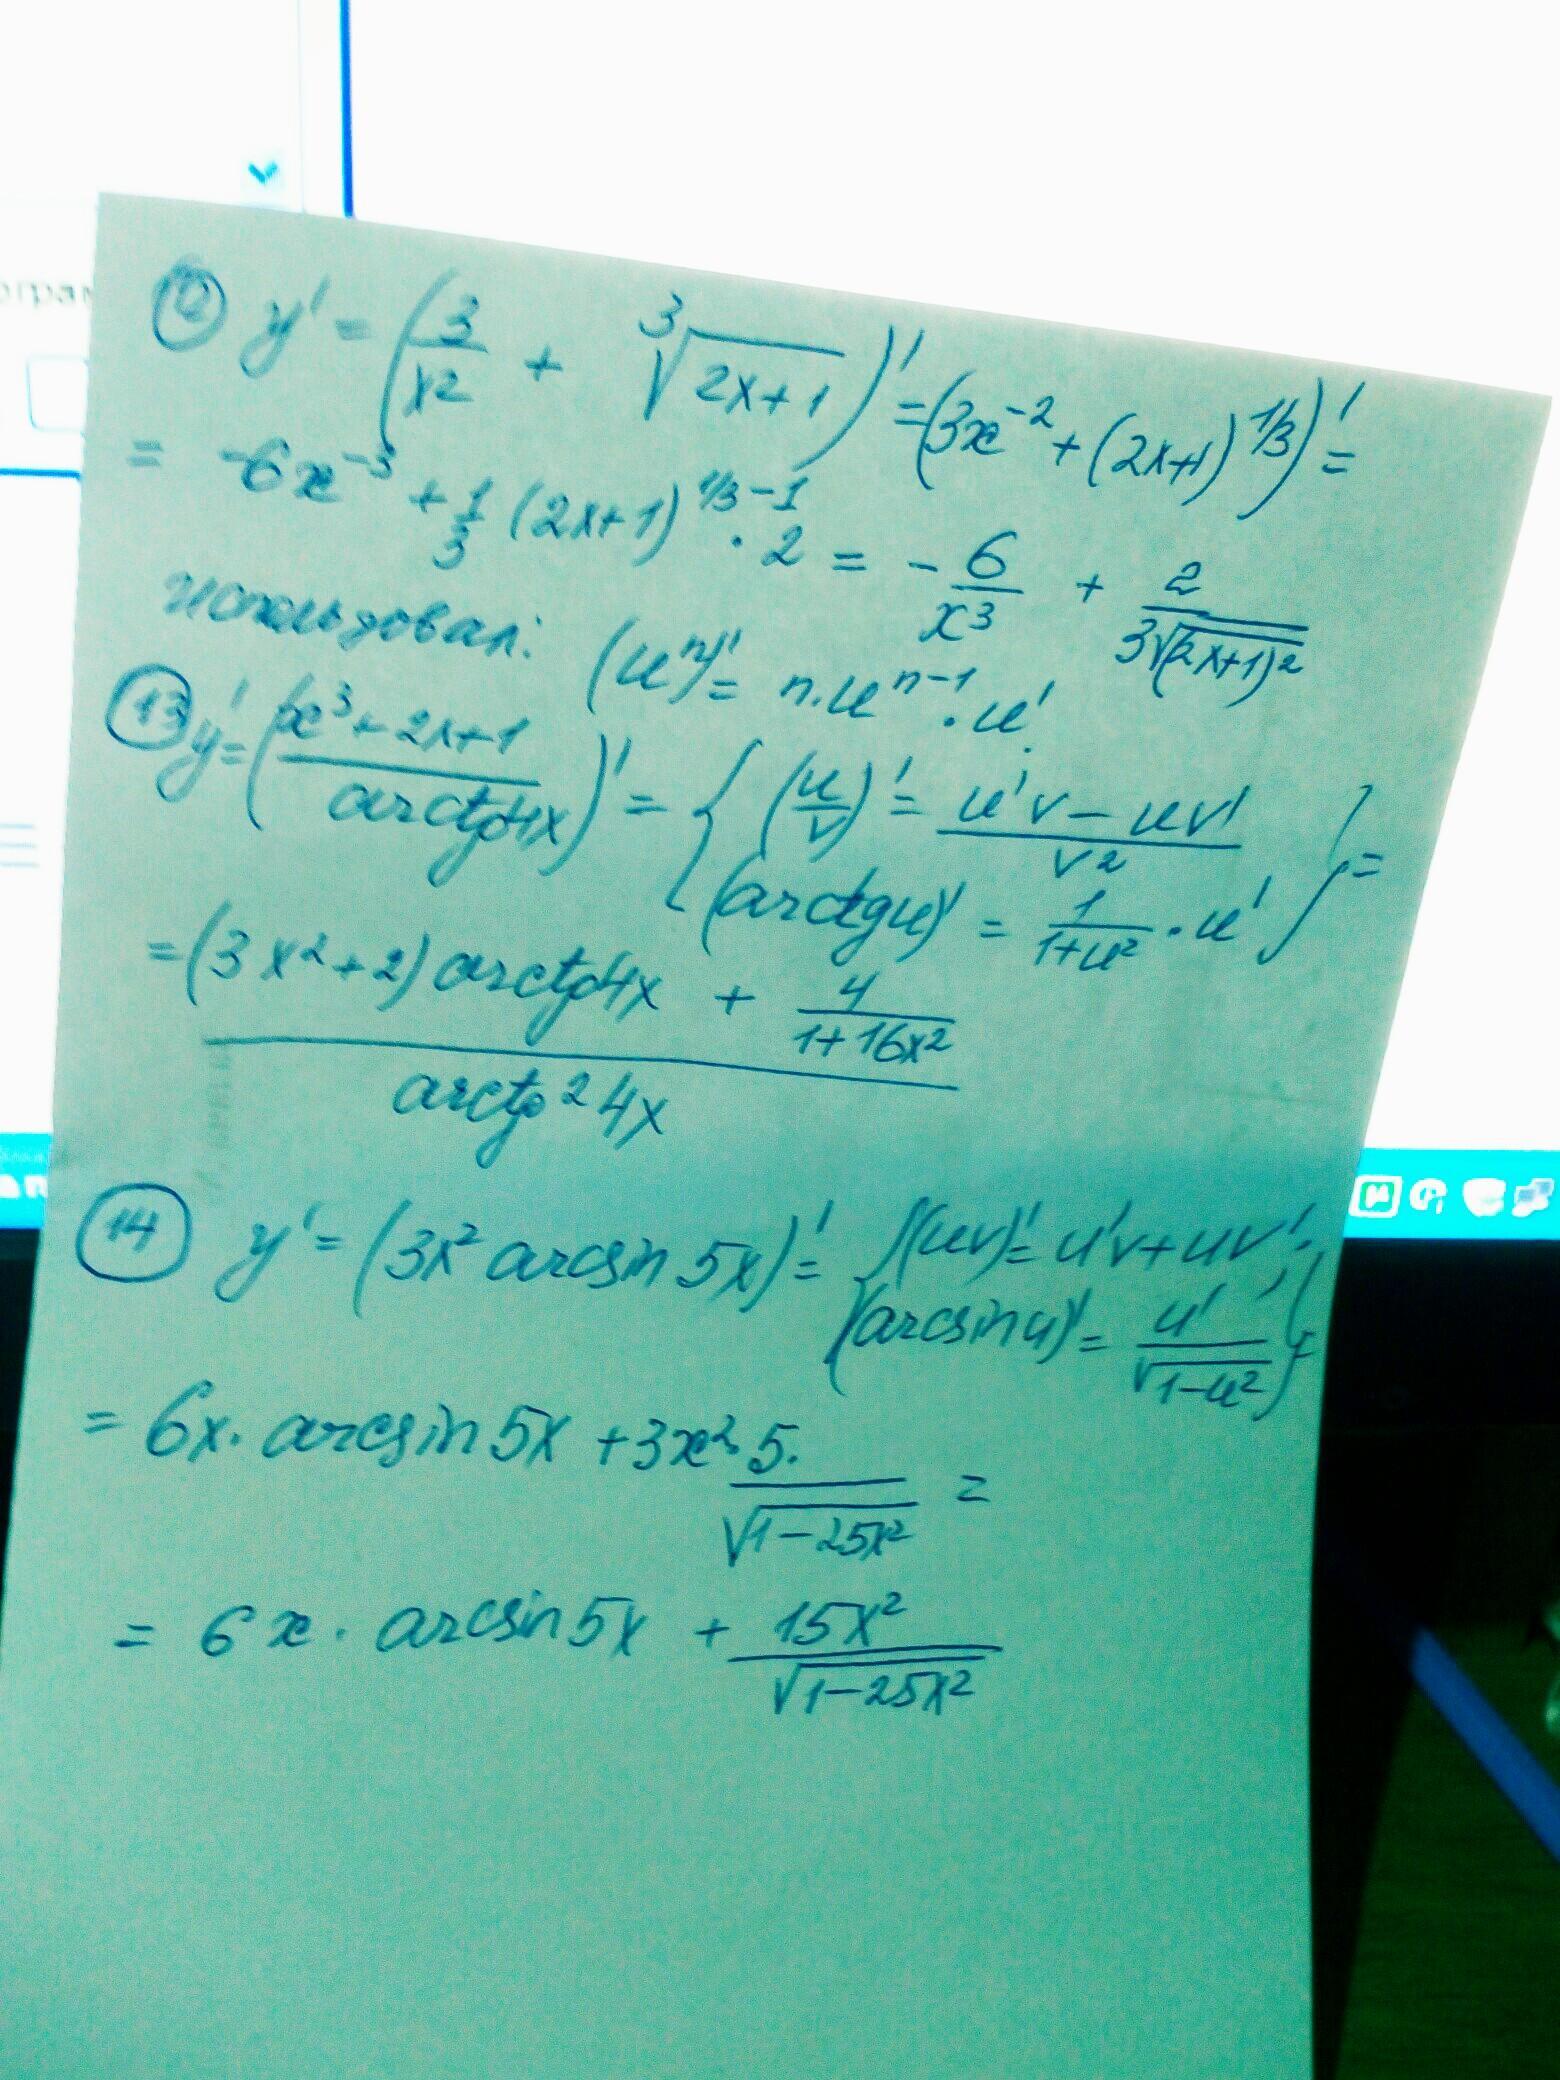 ограм
12 y' = (3/x² + ³√(2x+1))' = (3x⁻² + (2x+1)^1/3)' =
= -6x⁻³ + 1/3 (2x+1)^1/3-1 · 2 = - 6/x³ + 2/3√(2x+1)²
использовал: (uⁿ)' = n·uⁿ⁻¹·u'
13 y' = (x³+2x+1/arctg4x)' = { (u/v)' = u'v-uv'/v²
(arctgu)' = 1/1+u² · u' } =
= (3x²+2) arctg4x + 4/1+16x²
arctg²4x
14 y' = (3x² arcsin 5x)' = { (uv)' = u'v+uv';
(arcsinu)' = u'/√1-u² } =
= 6x · arcsin 5x + 3x²·5·/√1-25x² =
= 6x · arcsin5x + 15x²/√1-25x²